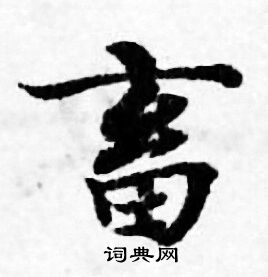 畜
词典网